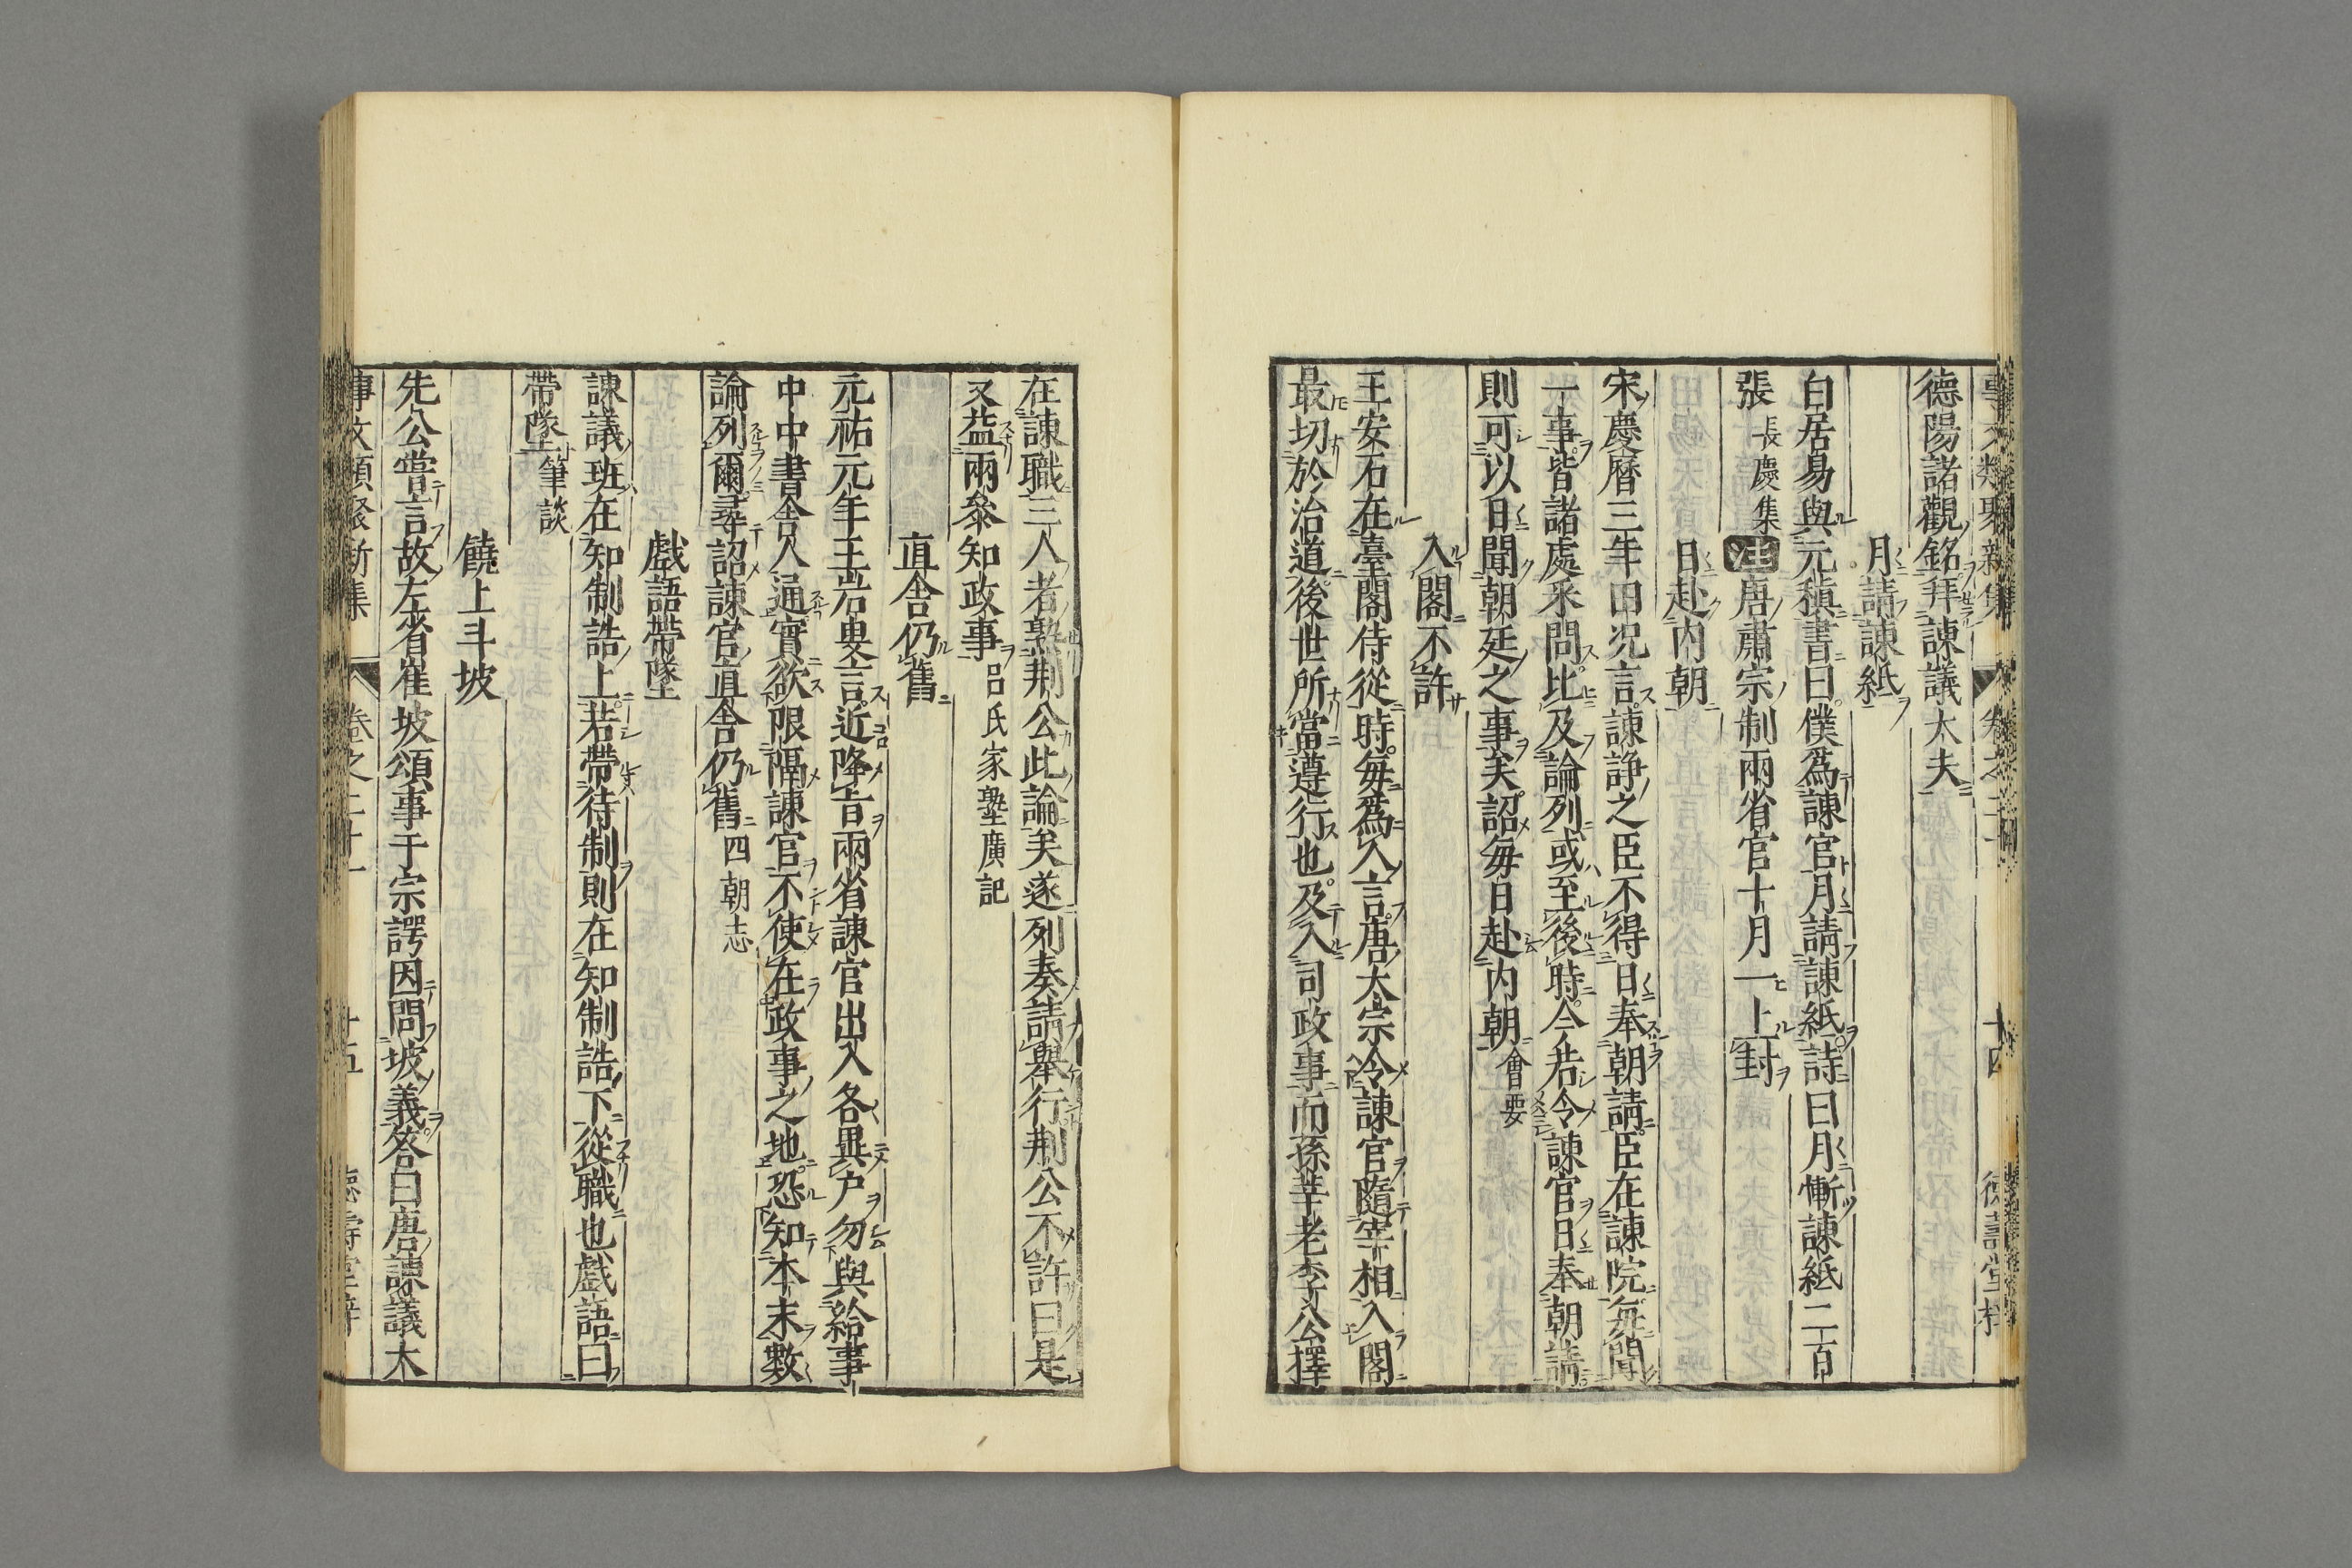 德陽諸觀銘拜諫議太夫
月請諫紙
白居易與元稹書曰僕爲諫官月請諫紙詩曰月慚諫紙二百
張 長慶集 注唐肅宗制兩省官十月一上封
日赴内朝
宋慶曆三年田况言諫諍之臣不得日奉朝請臣在諫院每聞
一事皆諸處釆問比及論列或至後時今若令諫官日奉朝請
則可以日聞朝廷之事矣詔每日赴内朝 會要
入閣不許
王安石在臺閣侍從時每爲人言唐太宗令諫官隨宰相入閣
最切於治道後世所當遵行也及入司政事而孫莘老李公擇
在諫職二人者熟荆公此論矣遂列奏請舉行荆公不許曰是
又益兩參知政事 呂氏家塾廣記
直舍仍舊
元祐元年王岩叟言近降旨兩省諫官出入各異户勿與給事
中中書舍人通實欲限隔諫官不使在政事之地恐知本末數
論列爾尋詔諫官直舍仍舊 四朝志
戲語帶墜
諫議班在知制誥上若帶待制則在知制誥下從職也戲語曰
帶墜 筆談
饒上斗坡
先公嘗言故左省崔坡頌事于宗諤因問坡義答曰唐諫議太
事文類聚新集 卷之二十一 十五